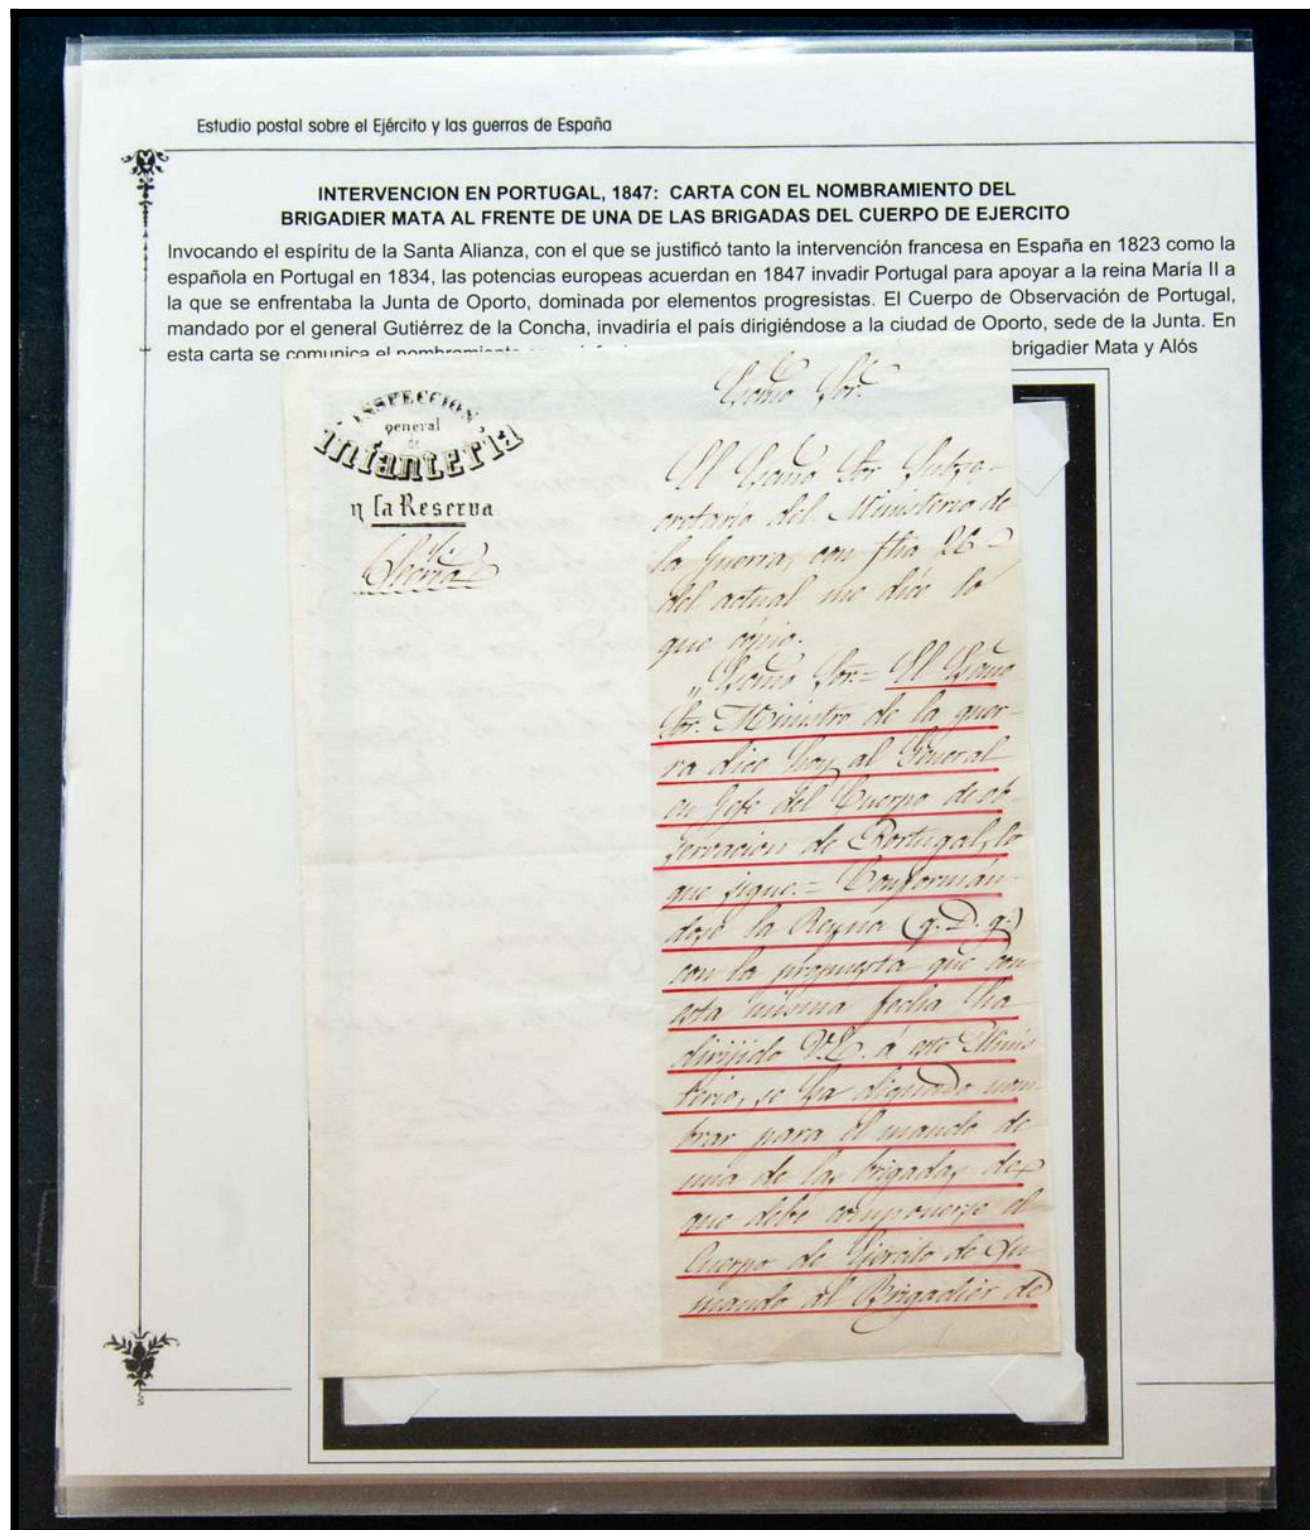 Estudio postal sobre el Ejército y las guerras de España
INTERVENCION EN PORTUGAL, 1847: CARTA CON EL NOMBRAMIENTO DEL
BRIGADIER MATA AL FRENTE DE UNA DE LAS BRIGADAS DEL CUERPO DE EJERCITO
Invocando el espíritu de la Santa Alianza, con el que se justificó tanto la intervención francesa en España en 1823 como la
española en Portugal en 1834, las potencias europeas acuerdan en 1847 invadir Portugal para apoyar a la reina María II a
la que se enfrentaba la Junta de Oporto, dominada por elementos progresistas. El Cuerpo de Observación de Portugal,
mandado por el general Gutiérrez de la Concha, invadiría el país dirigiéndose a la ciudad de Oporto, sede de la Junta. En
esta carta se comunica el nombramiento brigadier Mata y Alós
INSPECCION
general
de
infantería
y la Reserva
Exmo Sor.
El Exmo Sor Subse-
cretario del Ministerio de
la Guerra, con fha 26
del actual me dice lo
que cópio.
"Exmo Sor.= El Exmo
Sor. Ministro de la guer-
ra dice hoy al General
en Gefe del Cuerpo de ob-
servacion de Portugal, lo
que sigue.= Conformán-
dose la Reyna (q. D. g.)
con la propuesta que con
esta misma fecha ha
dirijido V.E. á este Minis
terio, se ha dignado nom-
brar para el mando de
una de las brigadas de
que debe componerse el
Cuerpo de Ejercito de su
mando al Brigadier de